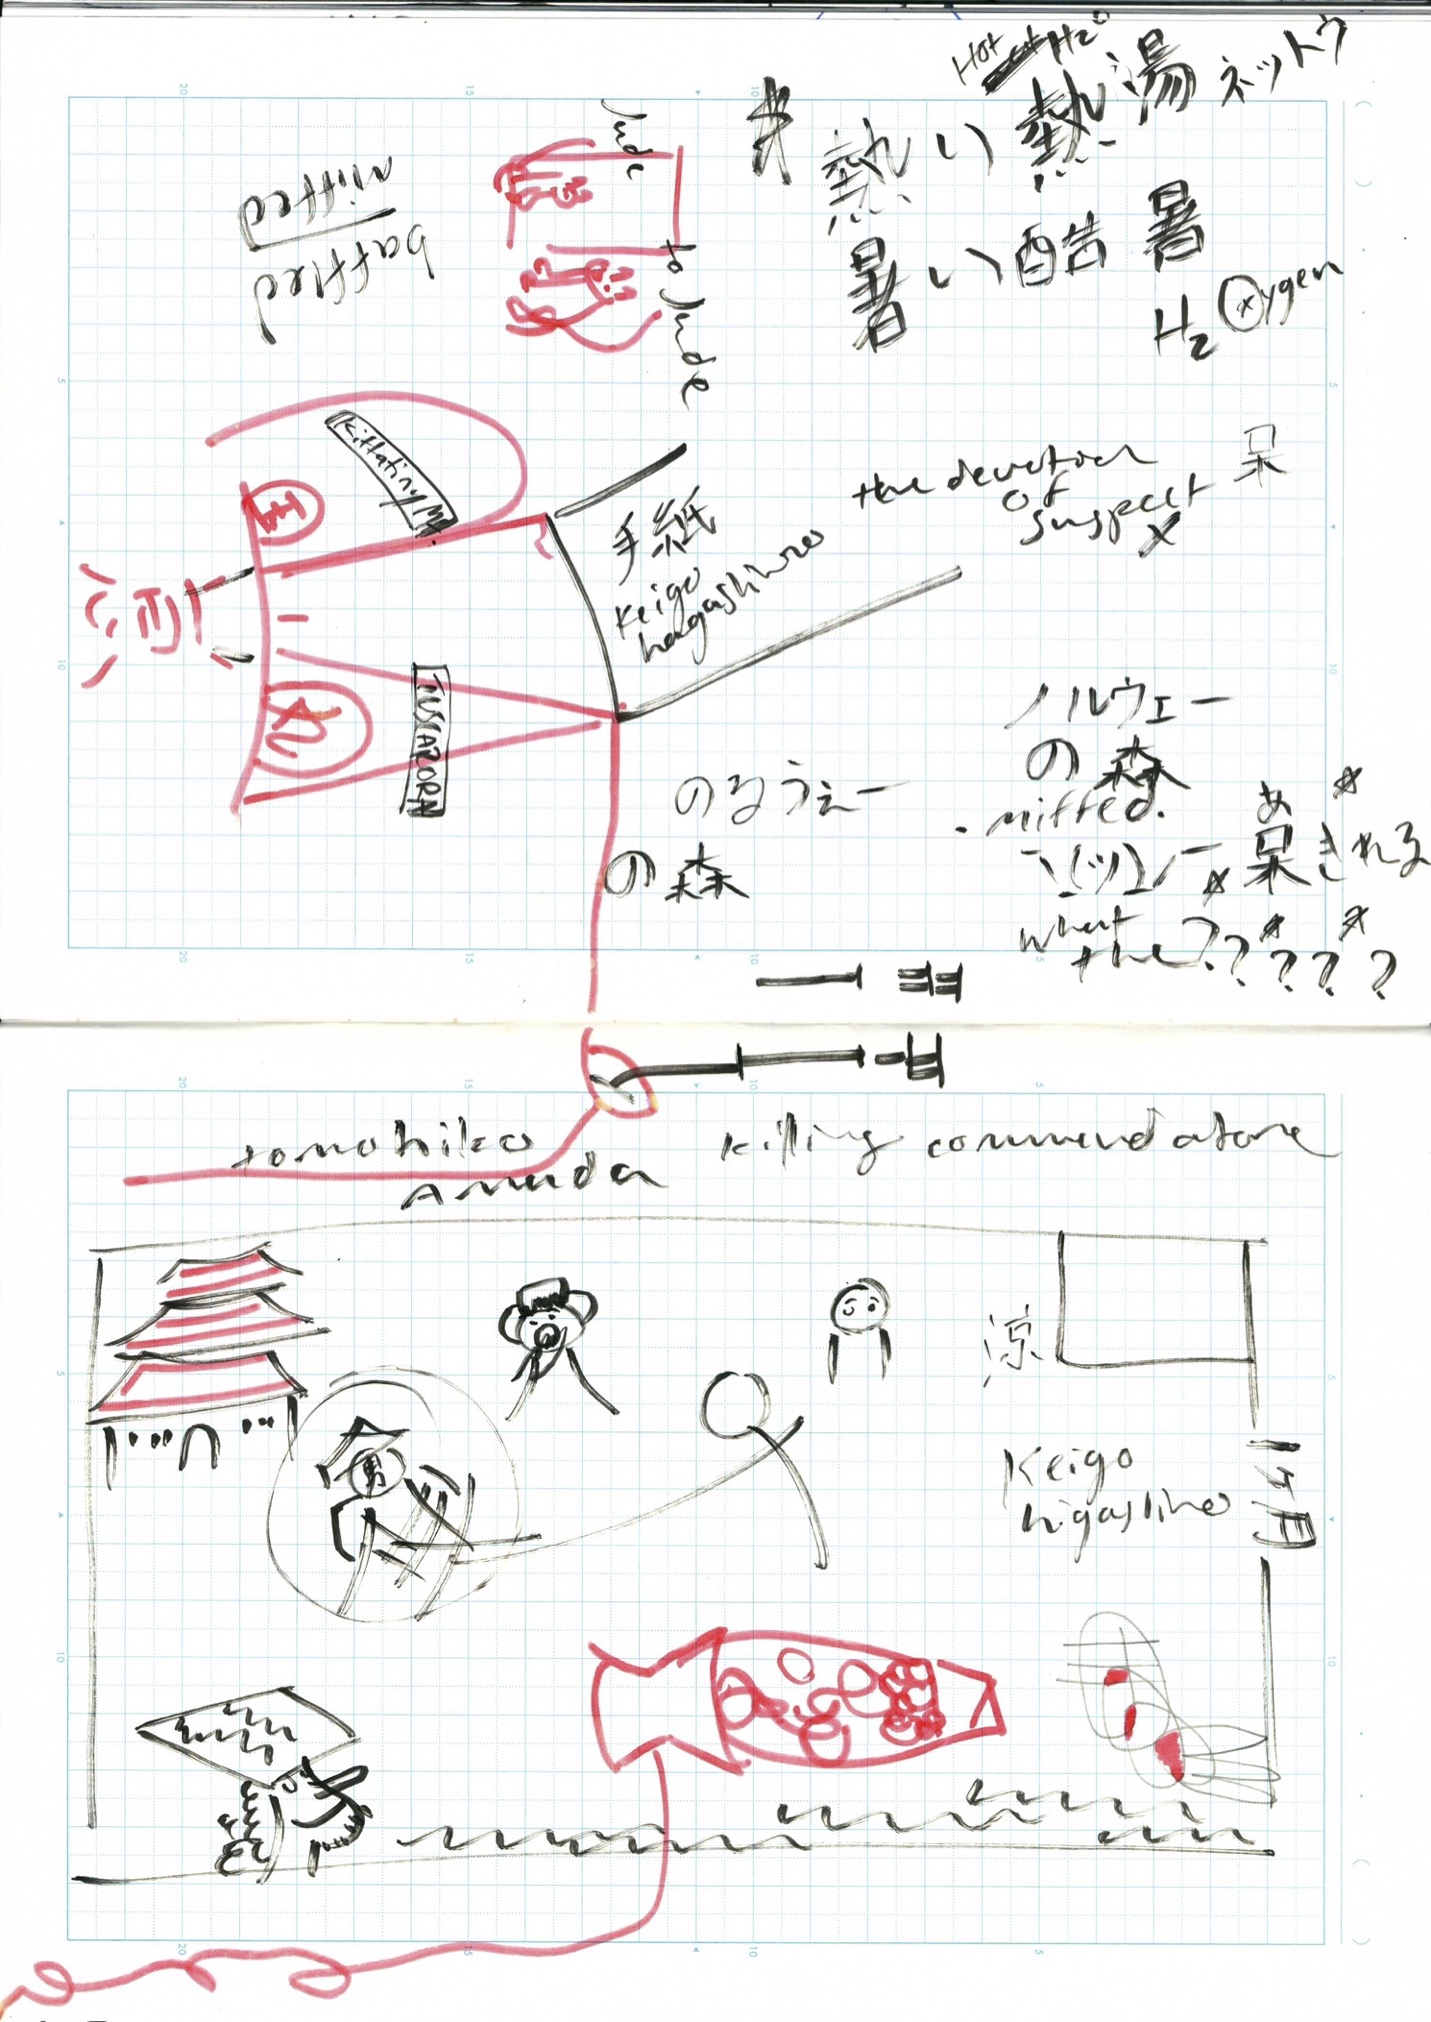 Hot H₂O
熱湯 ネットウ
熱い
暑い 酷暑
H₂ Oxygen
Jude
to Jude
miffed
baffled
Kittatiny Mt.
手紙
Keigo
hagashiwro
the devotion
of
suspect X
呆
TUSCARORA
ノルウェー
の森
miffed.
¯\_(ツ)_/¯
what
the ? ? ? ? ?
あ
呆きれる
のるうぇー
の森
tomohiko
Amada
Killing commendatore
涼
Keigo
higashino
1ヶ月
男